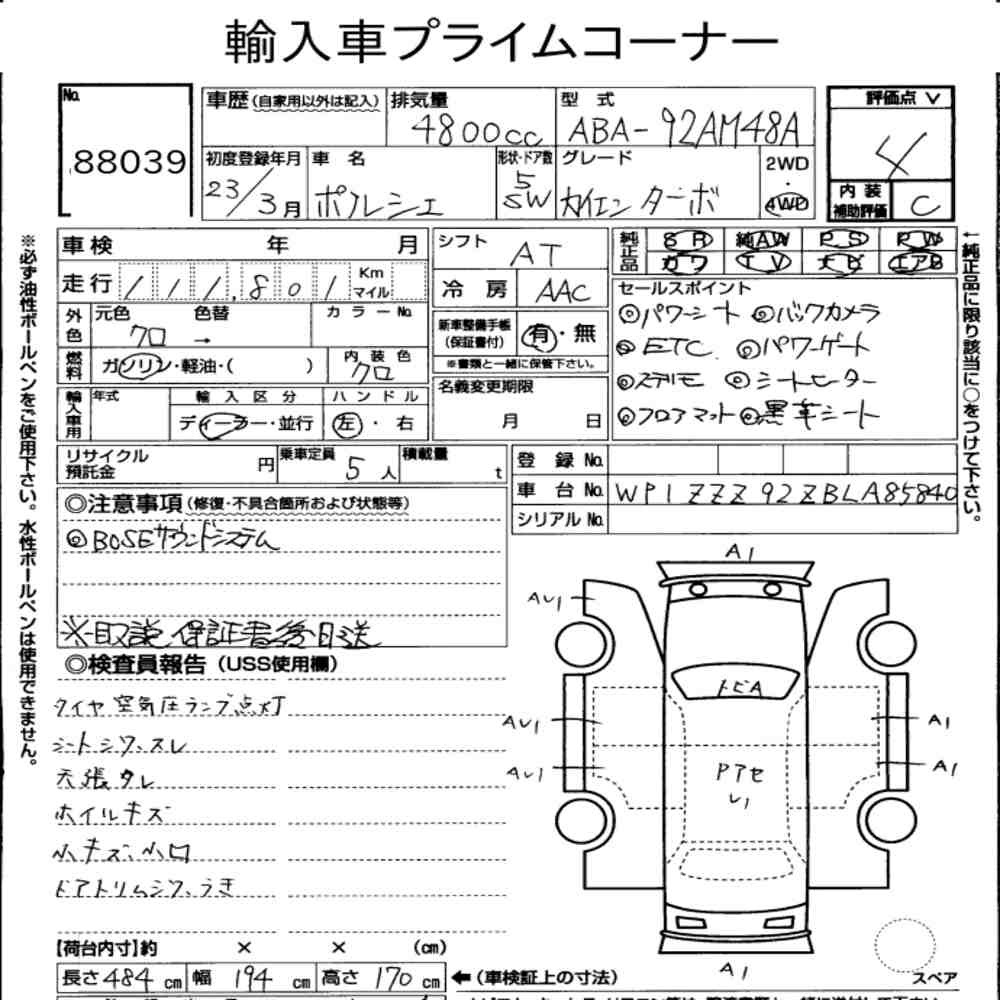 輸入車プライムコーナー
No. 88039
車歴 (自家用以外は記入) 排気量 4800cc 型式 ABA-92AM48A
評価点 ∨ 4
内装補助評価 C
初度登録年月 23/3月 車名 ポルシェ 形状・ドア数 5 SW グレード カイエンターボ 2WD・4WD
車検 年 月
走行 111,801 Km マイル
シフト AT
冷房 AAC
純正品 SR 純AW PS PW
カワ TV ナビ エアB
外色 元色 クロ 色替 → カラーNo.
燃料 ガソリン・軽油・( ) 内装色 クロ
新車整備手帳 (保証書付) 有・無
※書類と一緒に保管下さい。
セールスポイント
◎パワーシート ◎バックカメラ
◎ETC ◎パワーゲート
◎ステリモ ◎シートヒーター
◎フロアマット ◎黒革シート
輸入車用 年式 輸入区分 ディーラー・並行 ハンドル 左・右
名義変更期限 月 日
リサイクル預託金 円 乗車定員 5人 積載量 t
登録No.
車台No. WP1ZZZ92ZBLA85840
シリアルNo.
◎注意事項(修復・不具合箇所および状態等)
◎BOSEサウンドシステム
※取説 保証書後日送
◎検査員報告(USS使用欄)
タイヤ空気圧ランプ点灯
シートシワ、スレ
天張タレ
ホイルキズ
小キズ、小凹
ドアトリムシワ、うき
【荷台内寸】約 × × (cm)
長さ 484 cm 幅 194 cm 高さ 170 cm
←(車検証上の寸法)
※必ず油性ボールペンをご使用下さい。水性ボールペンは使用できません。
←純正品に限り該当に○をつけて下さい。
A1
AU1
トビA
AU1 A1
AU1 A1
Pアセ
レ1
A1
スペア